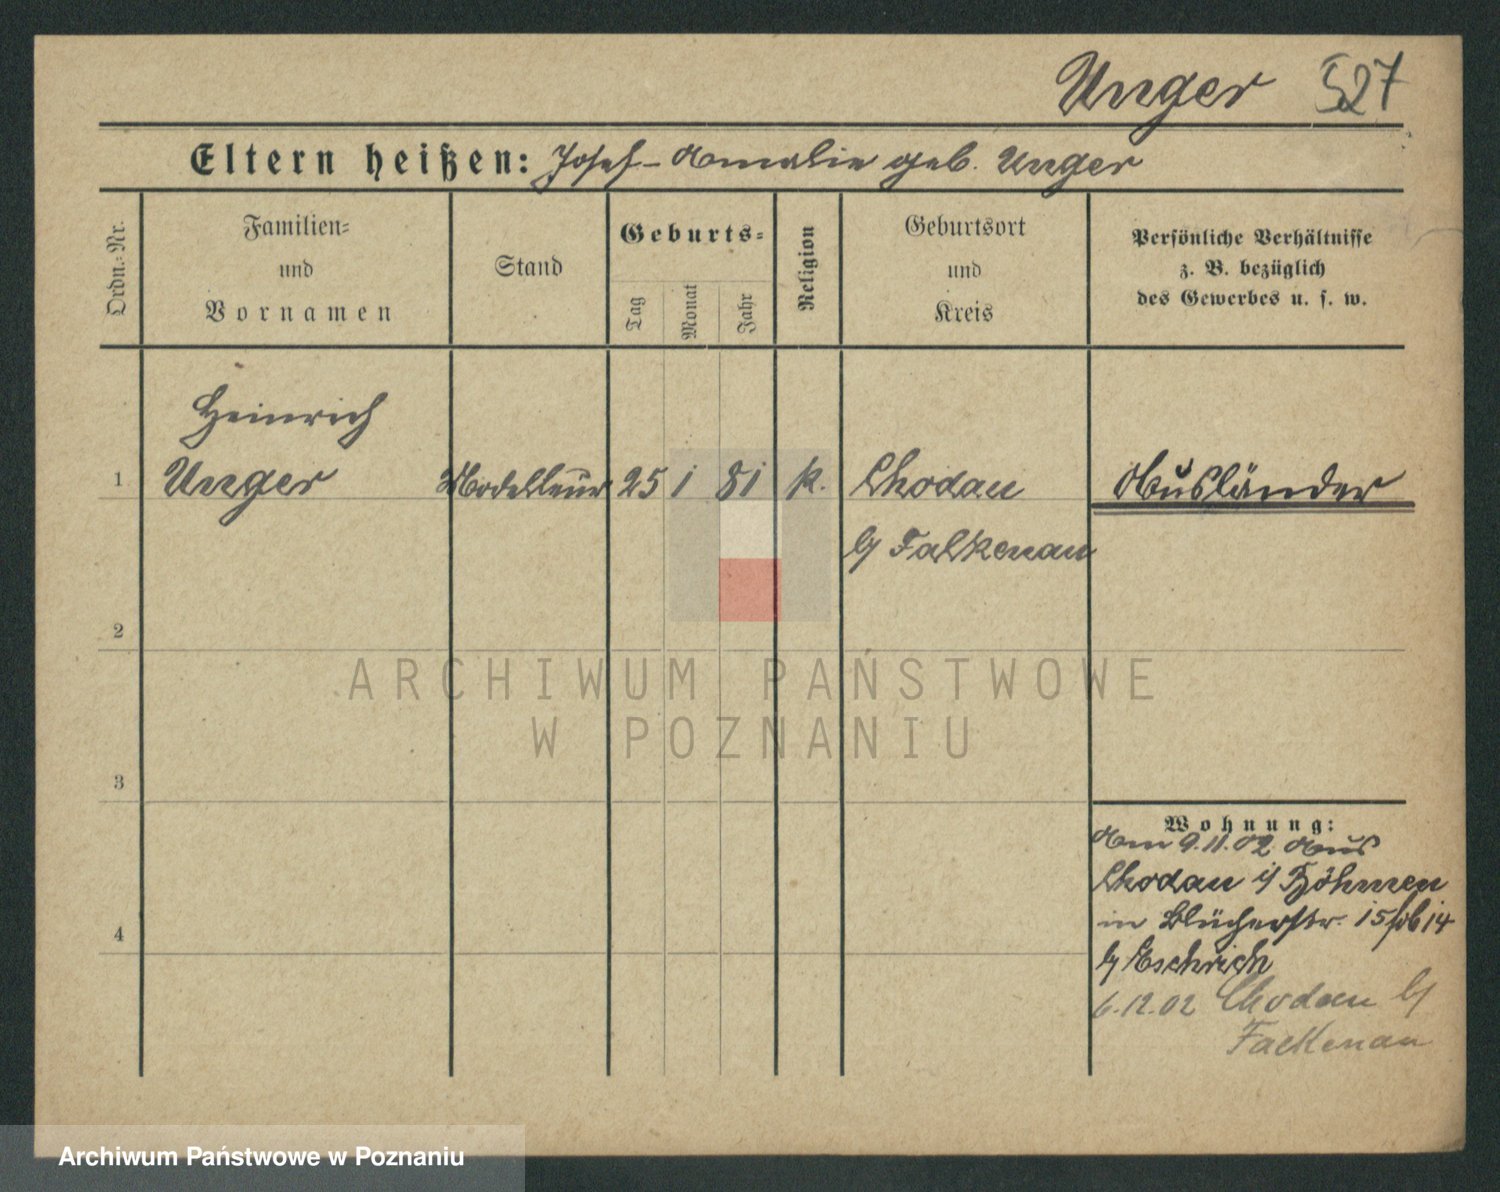 Unger 527
Eltern heißen: Josef - Amalie geb. Unger
Ordn.=Nr.
Familien=
und
Vornamen
Stand
Geburts=
Tag
Monat
Jahr
Religion
Geburtsort
und
Kreis
Persönliche Verhältnisse
z. B. bezüglich
des Gewerbes u. s. w.
Heinrich
1 Unger Modelleur 25 1 81 k. Chodau Ausländer
b/ Falkenau
2
3
4
Wohnung:
Am 9.11.02 aus
Chodau i/ Böhmen
in Blücherstr. 15 14
b/ Eschrich
6.12.02 Chodau b/
Falkenau
ARCHIWUM PAŃSTWOWE
W POZNANIU
Archiwum Państwowe w Poznaniu